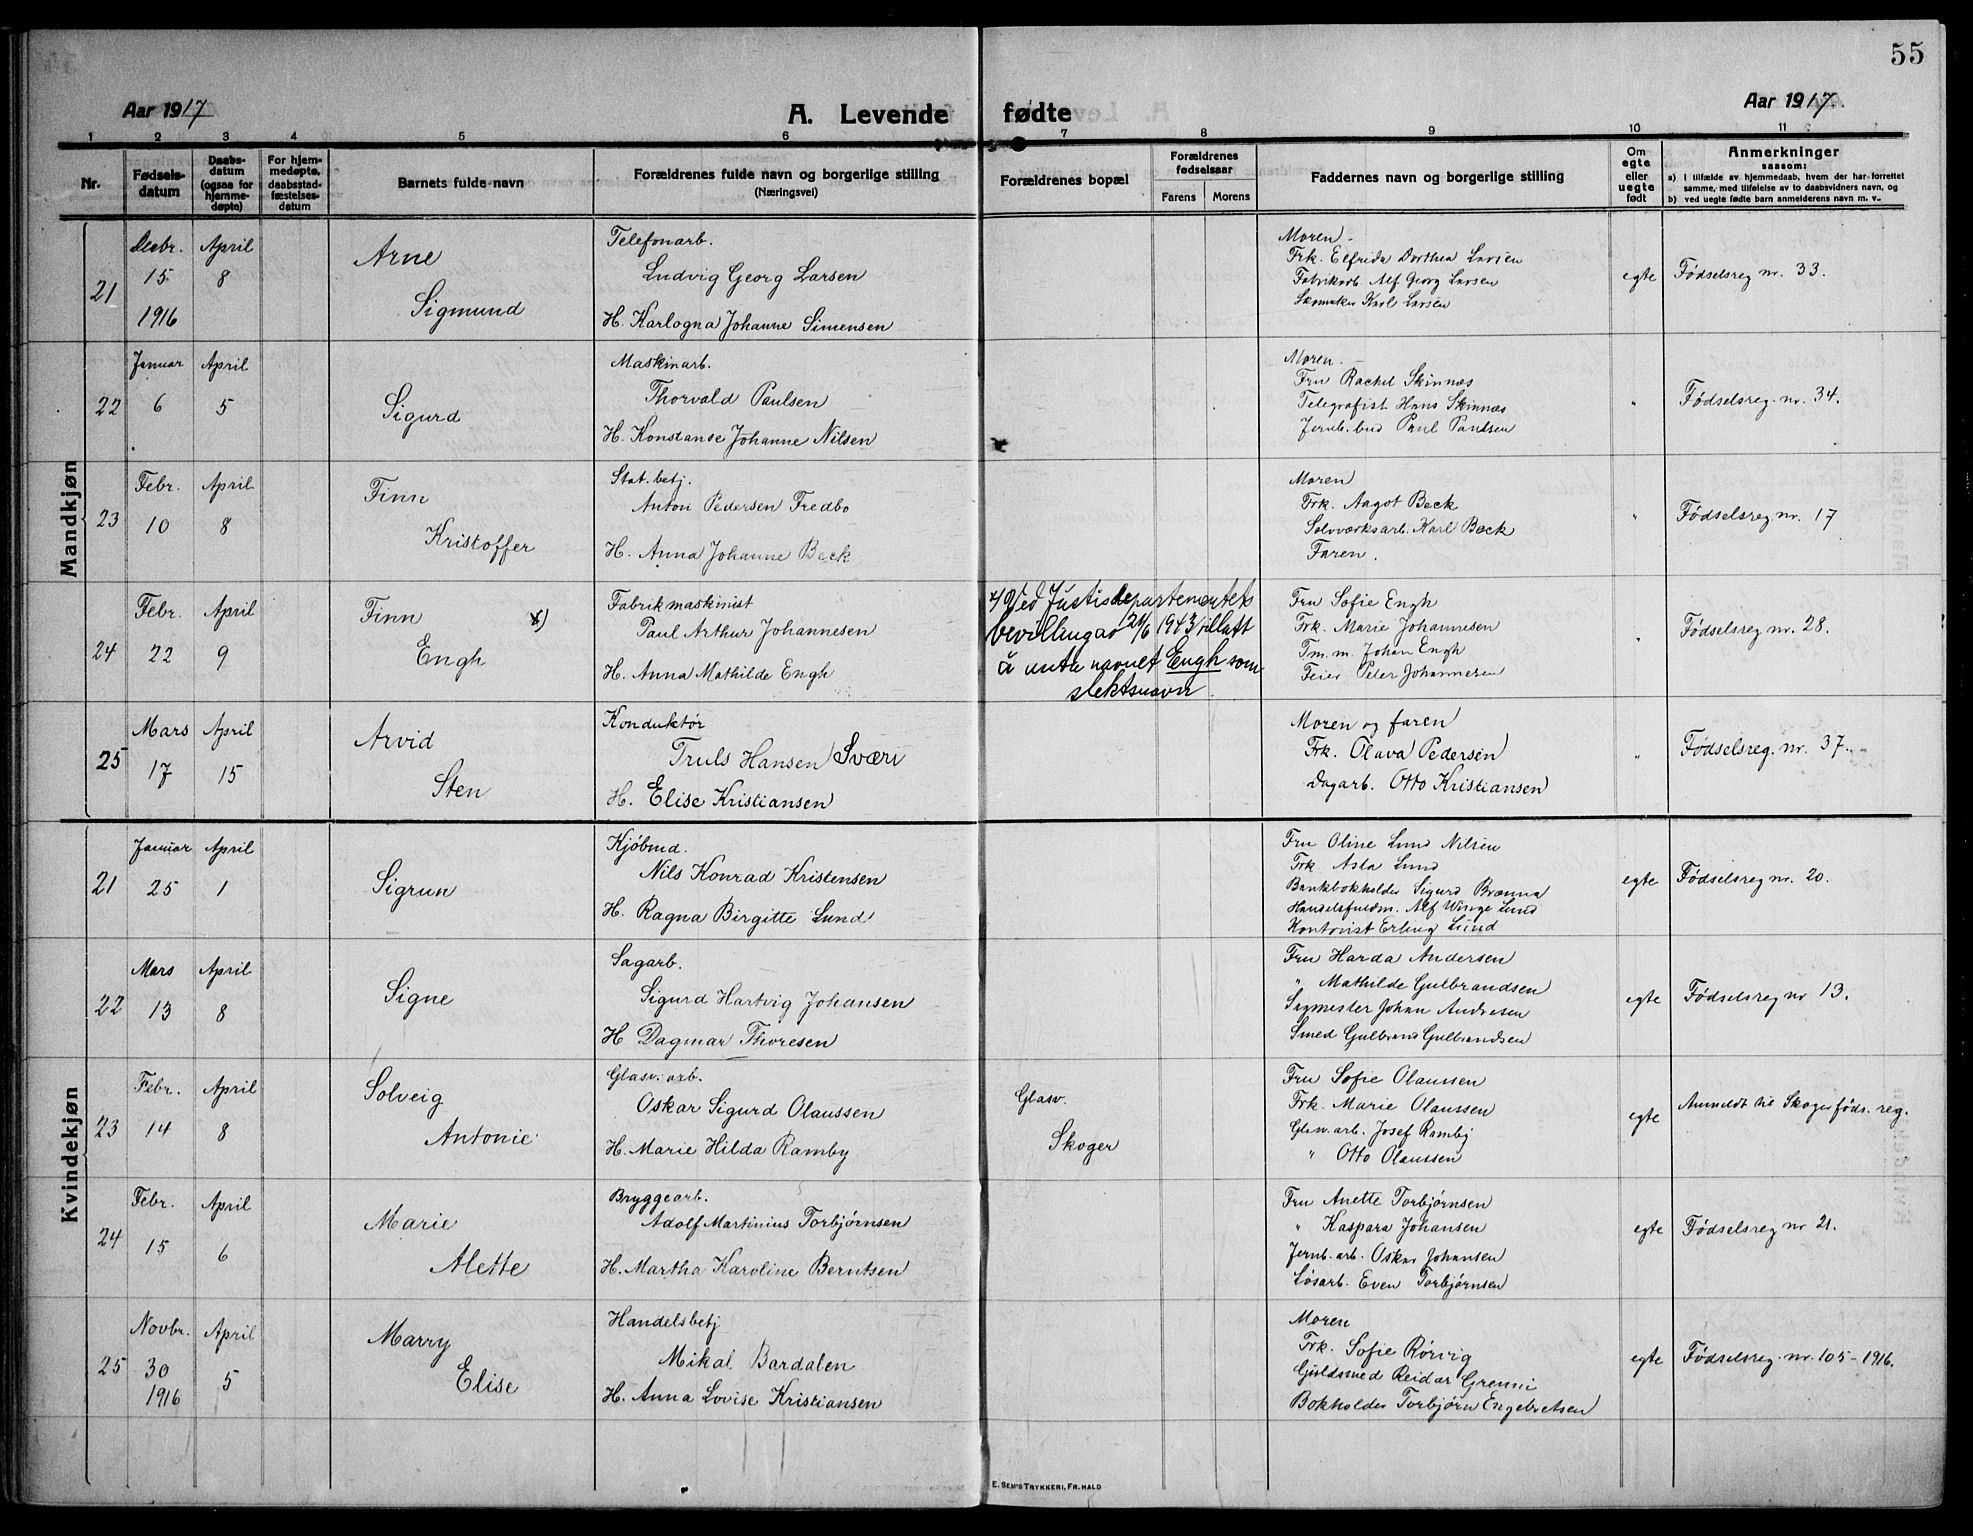 55
Aar 1917
A. Levende fødte
Aar 1917
1 2 3 4 5 6 7 8 9 10 11
Nr.
Fødsels-
datum
Daabs-
datum
(ogsaa for
hjemme-
døpte)
For hjem-
medøpte,
daabsstad-
fæstelses-
datum
Barnets fulde navn
Forældrenes fulde navn og borgerlige stilling
(Næringsvei)
Forældrenes bopæl
Forældrenes
fødselsaar
Farens Morens
Faddernes navn og borgerlige stilling
Om
egte
eller
uegte
født
Anmerkninger
saasom:
a) I tilfælde av hjemmedaab, hvem der har forrettet
samme, med tilføielse av to daabsvidners navn, og
b) ved uegte fødte barn anmelderens navn m. v.
Mandkjøn
21
Decbr.
15
1916
April
8
Arne
Sigmund
Telefonarb.
Ludvig Georg Larsen
H. Karlogna Johanne Simensen
Moren
Frk. Elfrida Dorthea Larsen
Fabrikarb. Alf Georg Larsen
Skomaker Karl Larsen
egte
Fødselsreg nr. 33.
22
Januar
6
April
5
Sigurd
Maskinarb.
Thorvald Paulsen
H. Konstanse Johanne Nilsen
Moren
Fru Rachel Skinnæs
Telegrafist Hans Skinnæs
Jernb. bud Paul Paulsen
"
Fødselsreg. nr. 34.
23
Febr.
10
April
8
Finn
Kristoffer
Stat. betj.
Anton Pedersen Fredbo
H. Anna Johanne Beck
Moren
Frk. Aagot Beck
Sølvverksarb. Karl Beck
Faren.
"
Fødselsreg nr. 17
24
Febr.
22
April
9
Finn x)
Engh
Fabrikmaskinist
Paul Arthur Johannesen
H. Anna Mathilde Engh
x) Ved Justisdepartementets
bevilling av 21/6 1943 tillatt
å anta navnet Engh som
slektsnavn.
Fru Sofie Engh
Frk. Marie Johannesen
Tm. m. Johan Engh
Feier Peter Johannesen
"
Fødselsreg nr. 28.
25
Mars
17
April
15
Arvid
Sten
Konduktør
Truls Hansen Sværi
H. Elise Kristiansen
Moren og faren
Frk. Olava Pedersen
Dagarb. Otto Kristiansen
"
Fødselsreg. nr. 37.
Kvindekjøn
21
Januar
25
April
1
Sigrun
Kjøbmd.
Nils Konrad Kristensen
H. Ragna Birgitte Lund
Fru Oline Lund Nilsen
Frk. Asta Lund
Bankbokholder Sigurd Brænna
Handelsfuldm. Alf Winge Lund
Kontorist Erling Lund
egte
Fødselsreg nr. 20.
22
Mars
13
April
8
Signe
Sagarb.
Sigurd Hartvig Johansen
H Dagmar Thoresen
Fru Harda Andersen
" Mathilde Gulbrandsen
Sagmester Johan Andresen
Smed Gulbrand Gulbrandsen
egte
Fødselsreg nr 13.
23
Febr.
14
April
8
Solveig
Antonie
Glasv. arb.
Oskar Sigurd Olaussen
H. Marie Hilda Ramby
Glasv.
Skoger
Fru Sofie Olaussen
Frk. Marie Olaussen
Glasv. arb. Josef Ramby
" Otto Olaussen
egte
Anmeldt til Skoger føds. reg.
24
Febr.
15
April
6
Marie
Alette
Bryggearb.
Adolf Martinius Torbjørnsen
H. Martha Karoline Berntsen
Fru Anette Torbjørnsen
" Kaspara Johansen
Jernb. arb. Oskar Johansen
Løsarb. Even Torbjørnsen
egte
Fødselsreg nr 21.
25
Novbr.
30
1916
April
5
Marry
Elise
Handelsbetj
Mikal Bardalen
H. Anna Lovise Kristiansen
Moren
Frk. Sofie Rørvig
Guldsmed Reidar Grenni
Bokholder Torbjørn Engebretsen
egte
Fødselsreg. nr. 105-1916.
E. SEM'S TRYKKERI, FR.HALD